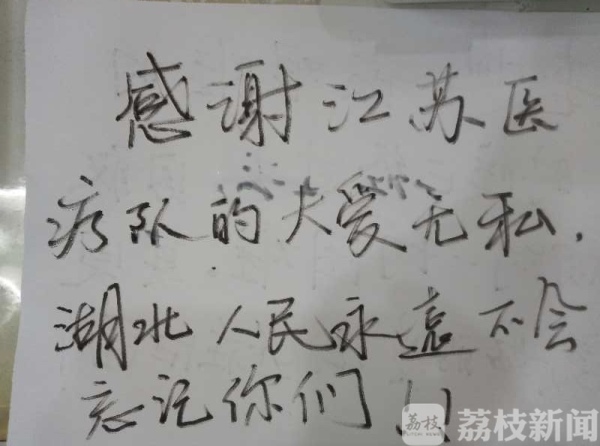 感谢江苏医
疗队的大爱无私，
湖北人民永遠不会
忘记你们!!
荔枝
荔枝新闻